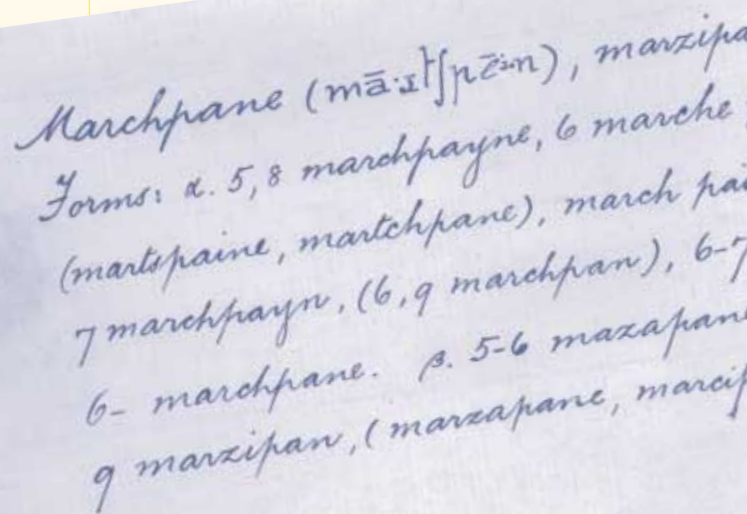 Marchpane (mā·ɹtʃpēⁱn), marzipa
Forms: α. 5, 8 marchpayne, 6 marche
(martspaine, martchpane), march pai
7 marchpayn, (6, 9 marchpan), 6-7
6- marchpane. β. 5-6 mazapane
9 marzipan, (marzapane, marcip